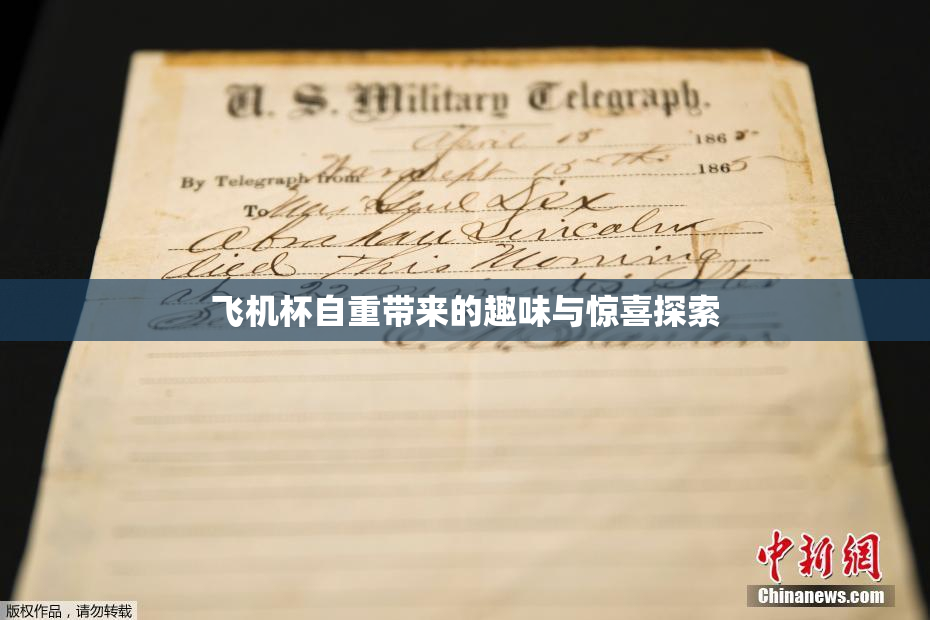 U. S. Military Telegraph.
April 15 1865
By Telegraph from War Dept 15th 1865
To Maj Genl Dix
Abraham Lincoln
died This Morning
at 22 minutes after
飞机杯自重带来的趣味与惊喜探索
E. M. Stanton
中新網
Chinanews.com
版权作品，请勿转载